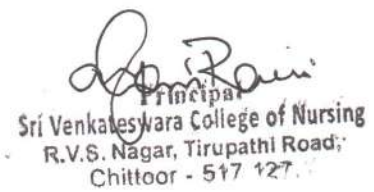 Principal
Sri Venkateswara College of Nursing
R.V.S. Nagar, Tirupathi Road,
Chittoor - 517 127.